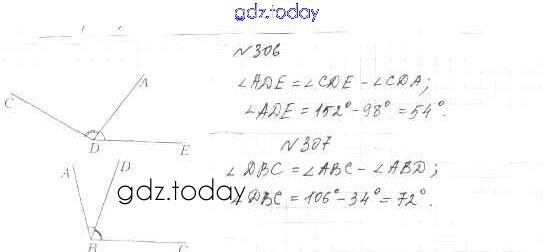 gdz.today
N306
∠ADE = ∠CDE - ∠CDA;
∠ADE = 152° - 98° = 54°.
A
C
D
E
N307
∠DBC = ∠ABC - ∠ABD;
∠DBC = 106° - 34° = 72°.
A
D
gdz.today
B
C